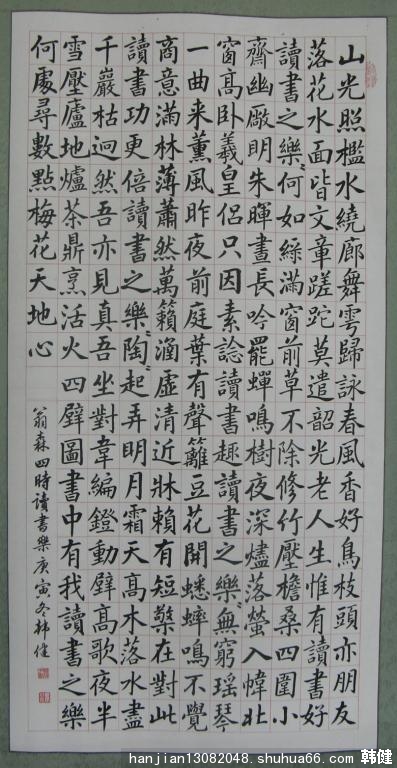 山光照檻水繞廊舞雩歸詠春風香好鳥枝頭亦朋友
落花水面皆文章蹉跎莫遣韶光老人生惟有讀書好
讀書之樂〻何如綠滿窗前草不除修竹壓檐桑四圍小
齋幽厰明朱暉晝長吟罷蟬鳴樹夜深燼落螢入幃北
窗高卧羲皇侶只因素諗讀書趣讀書之樂〻無窮瑤琴
一曲来薰風昨夜前庭葉有聲籬豆花開蟋蟀鳴不覺
商意滿林薄蕭然萬籟涵虛清近牀賴有短檠在對此
讀書功更倍讀書之樂〻陶〻起弄明月霜天高木落水盡
千巖枯迥然吾亦見真吾坐對韋編鐙動壁高歌夜半
雪壓廬地爐茶鼎烹活火四壁圖書中有我讀書之樂
何處尋數點梅花天地心
翁森四時讀書樂庚寅冬韩健
hanjian13082048.shuhua66.com 韩健